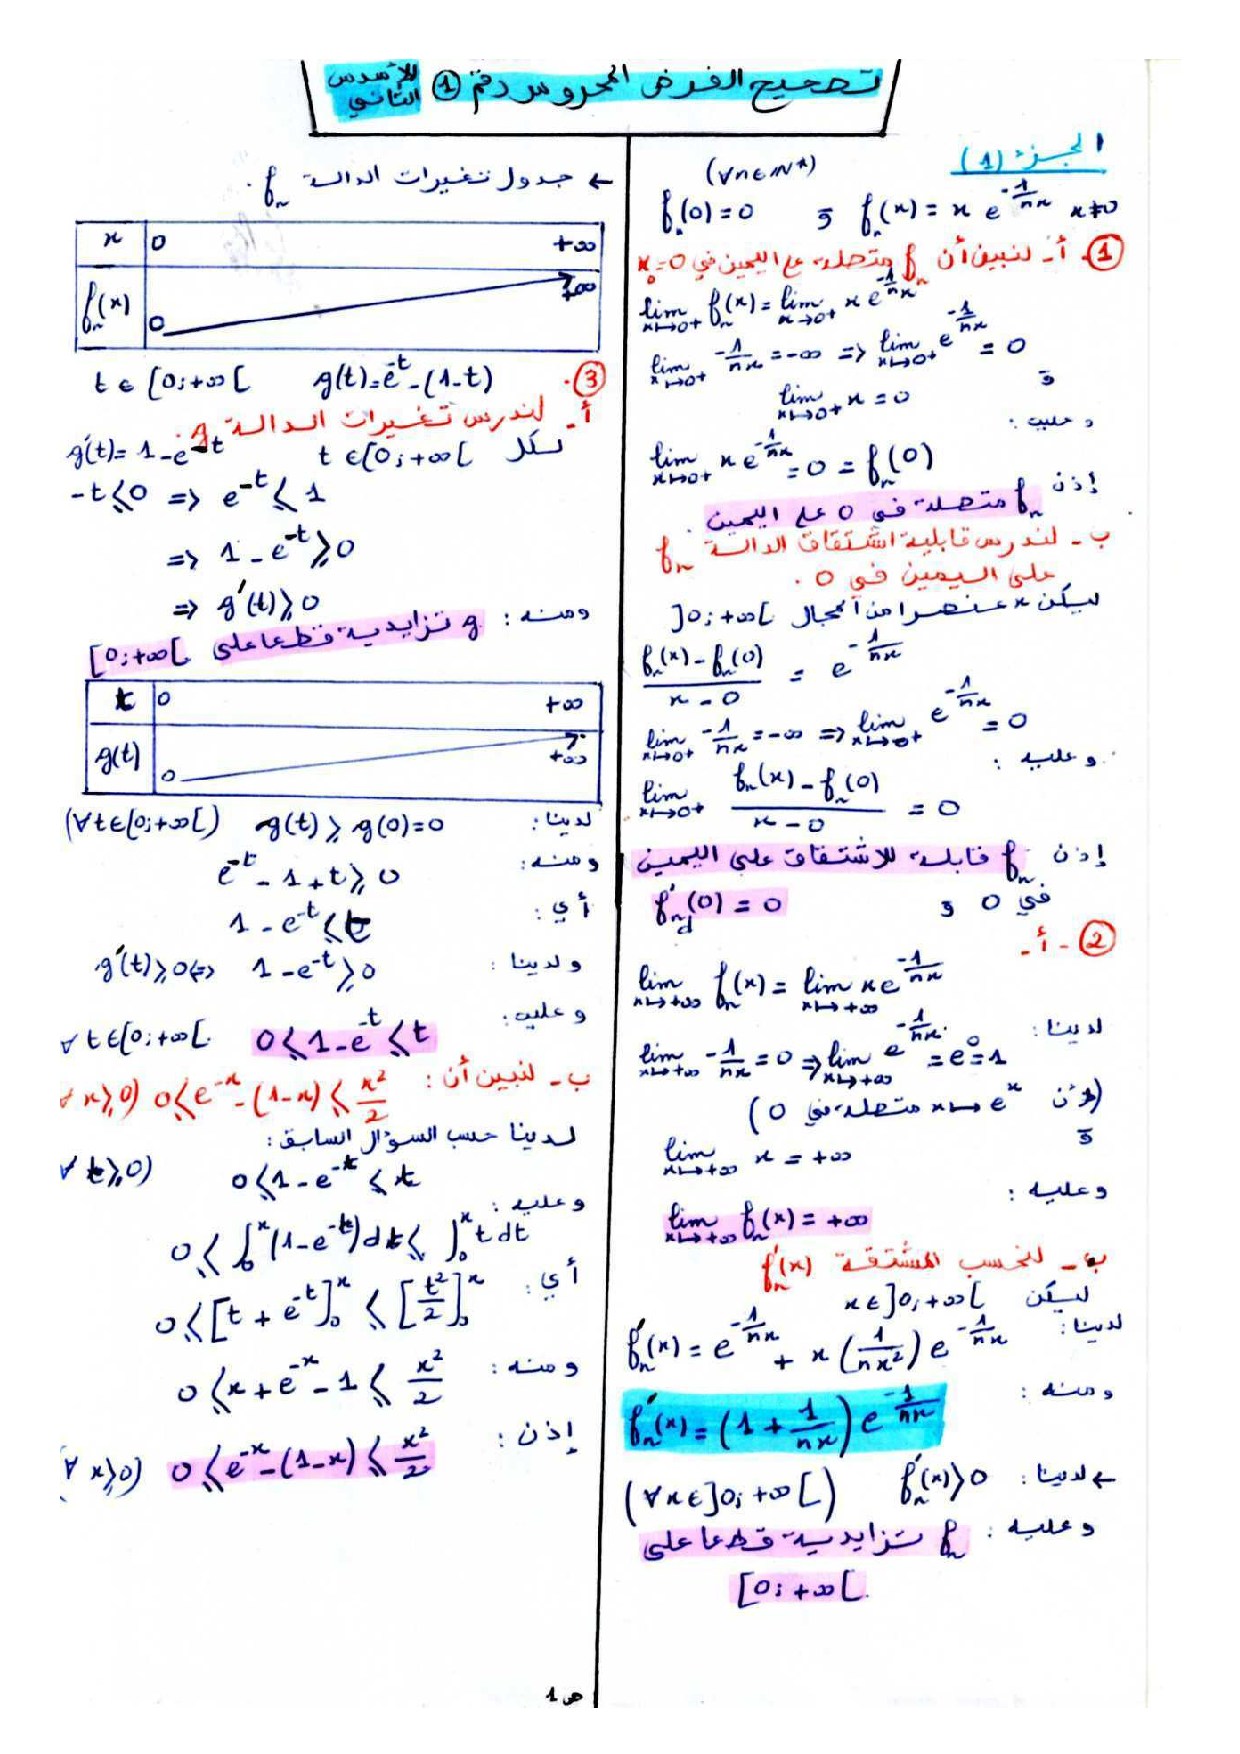 تصحيح الفرض المحروس رقم ① للأسدس الثاني
الجزء (1)
(∀n∈ℕ*)
f_n(0) = 0 و f_n(x) = x e^{-1/nx} x≠0
①. أ - لنبين أن f_n متصلة على اليمين في x₀=0
lim_{x→0+} f_n(x) = lim_{x→0+} x e^{-1/nx}
lim_{x→0+} -1/nx = -∞ => lim_{x→0+} e^{-1/nx} = 0
و
lim_{x→0+} x = 0
وعليه :
lim_{x→0+} x e^{-1/nx} = 0 = f_n(0)
إذن f_n متصلة في 0 على اليمين .
ب - لندرس قابلية اشتقاق الدالة f_n
على اليمين في 0 .
ليكن x عنصرا من المجال ]0;+∞[
(f_n(x) - f_n(0))/(x - 0) = e^{-1/nx}
lim_{x→0+} -1/nx = -∞ => lim_{x→0+} e^{-1/nx} = 0
وعليه :
lim_{x→0+} (f_n(x) - f_n(0))/(x - 0) = 0
إذن f_n قابلة للاشتقاق على اليمين
في 0 و f'_{n d}(0) = 0
② - أ -
lim_{x→+∞} f_n(x) = lim_{x→+∞} x e^{-1/nx}
لدينا :
lim_{x→+∞} -1/nx = 0 => lim_{x→+∞} e^{-1/nx} = e^0 = 1
(لأن x→e^x متصلة في 0)
و
lim_{x→+∞} x = +∞
وعليه :
lim_{x→+∞} f_n(x) = +∞
ب - لنحسب المشتقة f'_n(x)
ليكن x∈]0;+∞[
لدينا :
f'_n(x) = e^{-1/nx} + x (1/nx²) e^{-1/nx}
ومنه :
f'_n(x) = (1 + 1/nx) e^{-1/nx}
← لدينا : f'_n(x) > 0
(∀x∈]0;+∞[)
وعليه : f_n تزايدية قطعا على
[0;+∞[.
← جدول تغيرات الدالة f_n .
x 0 +∞
f_n(x) 0 +∞
③. g(t) = e^{-t} - (1-t) t∈[0;+∞[
أ - لندرس تغيرات الدالة g.
لكل t∈[0;+∞[ g'(t) = 1 - e^{-t}
-t ⩽ 0 => e^{-t} ⩽ 1
=> 1 - e^{-t} ⩾ 0
=> g'(t) ⩾ 0
ومنه : g تزايدية قطعا على [0;+∞[
t 0 +∞
g(t) 0 +∞
لدينا : g(t) ⩾ g(0) = 0 (∀t∈[0;+∞[)
ومنه : e^{-t} - 1 + t ⩾ 0
أي : 1 - e^{-t} ⩽ t
ولدينا : 1 - e^{-t} ⩾ 0 <=> g'(t) ⩾ 0
وعليه : 0 ⩽ 1 - e^{-t} ⩽ t ∀t∈[0;+∞[.
ب - لنبين أن : 0 ⩽ e^{-x} - (1-x) ⩽ x²/2 (∀x⩾0)
لدينا حسب السؤال السابق :
0 ⩽ 1 - e^{-t} ⩽ t (∀t⩾0)
وعليه :
0 ⩽ ∫_0^x (1-e^{-t}) dt ⩽ ∫_0^x t dt
أي :
0 ⩽ [t + e^{-t}]_0^x ⩽ [t²/2]_0^x
ومنه : 0 ⩽ x + e^{-x} - 1 ⩽ x²/2
إذن :
0 ⩽ e^{-x} - (1-x) ⩽ x²/2 (∀x⩾0)
ص 1